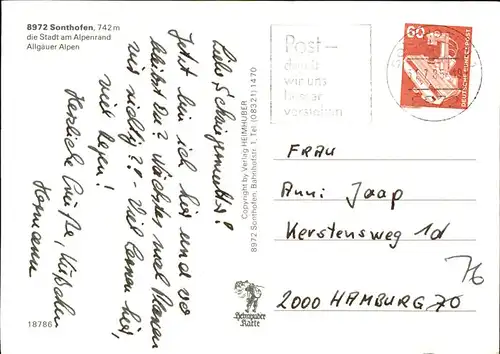 8972 Sonthofen, 742 m
die Stadt am Alpenrand
Allgäuer Alpen
Liebe Schwiegermutter!
Jetzt bin ich hier und wo
bleibst Du? Nächstes mal
uns richtig?! - Viel Lernen hier,
viel Regen!
Herzliche Grüße, Küßchen
Hermann
18786
Copyright by Verlag HEIMHUBER
8972 Sonthofen, Bahnhofstr. 1, Tel (08321) 1470
Heimhuber
Karte
Post -
damit
wir uns
besser
verstehen
60
DEUTSCHE BUNDESPOST
FRAU
Anni Jaap
Kerstensweg 1d
2000 HAMBURG 70
76